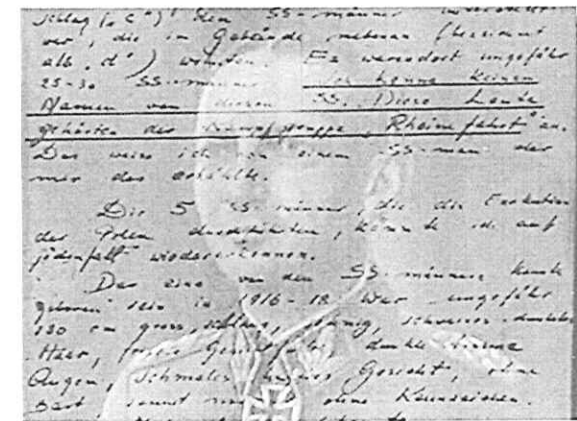 schlag (= C") den SS-männer
ver, die im Gebäude nebenan (bezeichnet
als "d") wohnten. Es waren dort ungefähr
25-30 SS-männer. Ich kenne keinen
Namen von diesen SS. Diese Leute
gehörten der Kampfgruppe "Rheinefahrt" an.
Das weiss ich von einem SS-man der
mir das erzählte.
Die 5 SS-männer, die die Exekution
der Polen durchführten, könnte ich auf
jedenfall wiedererkennen.
Der eine von den SS-männer konnte
geboren sein in 1916-18. War ungefähr
180 cm gross, schlank, sehnig, schwarze-dunkle
Haar, Gesichtsfarbe, dunkle braune
Augen, schmales Gesicht, ohne
Bart, sonnst ohne Kennzeichen.